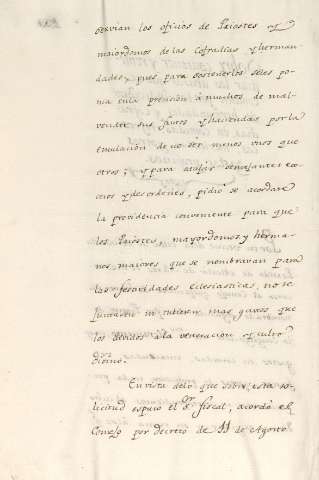 servian los oficios de Priostes y
mayordomos de las Cofradias y herman
dades, pues para sostenerlos seles po-
nia en la precision à muchos de mal-
vender sus ganos y haciendas por la
emulacion de no ser menos unos que
otros; y para atajar semejantes ex-
cesos y desordenes, pidiò se acordare
la providencia conveniente para que
los Priostes, mayordomos y herma-
nos maiores, que se nombravan para
las festividades eclesiasticas, no se
hiciesen mas gastos que
los devidos à la veneracion y culto
divino.
En vista delo que sobre esta so-
licitud expuso el Sr. fiscal, acordò el
Consejo por decreto de 11 de Agosto